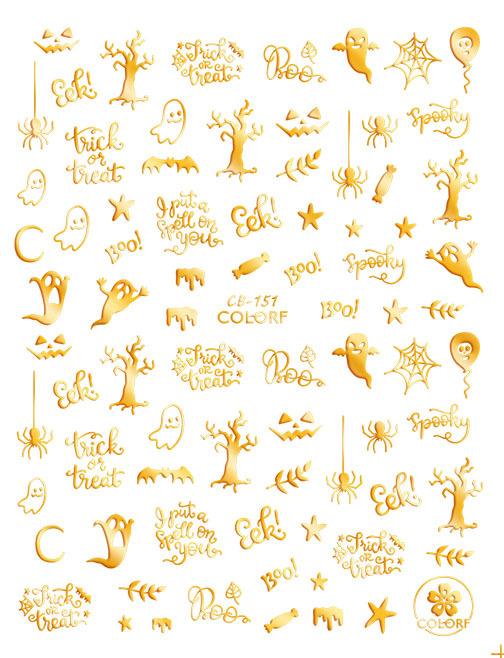 Trick
or
treat
Boo
Eek!
spooky
trick
or
treat
I put a
spell on
you
Eek!
Boo!
Boo!
Spooky
CB-151
COLORF
Boo!
Trick
or
treat
Boo
Eek!
spooky
trick
or
treat
Eek!
I put a
spell on
you
Eek!
Boo!
Trick
or
treat
Trick
or
treat
Boo
COLORF